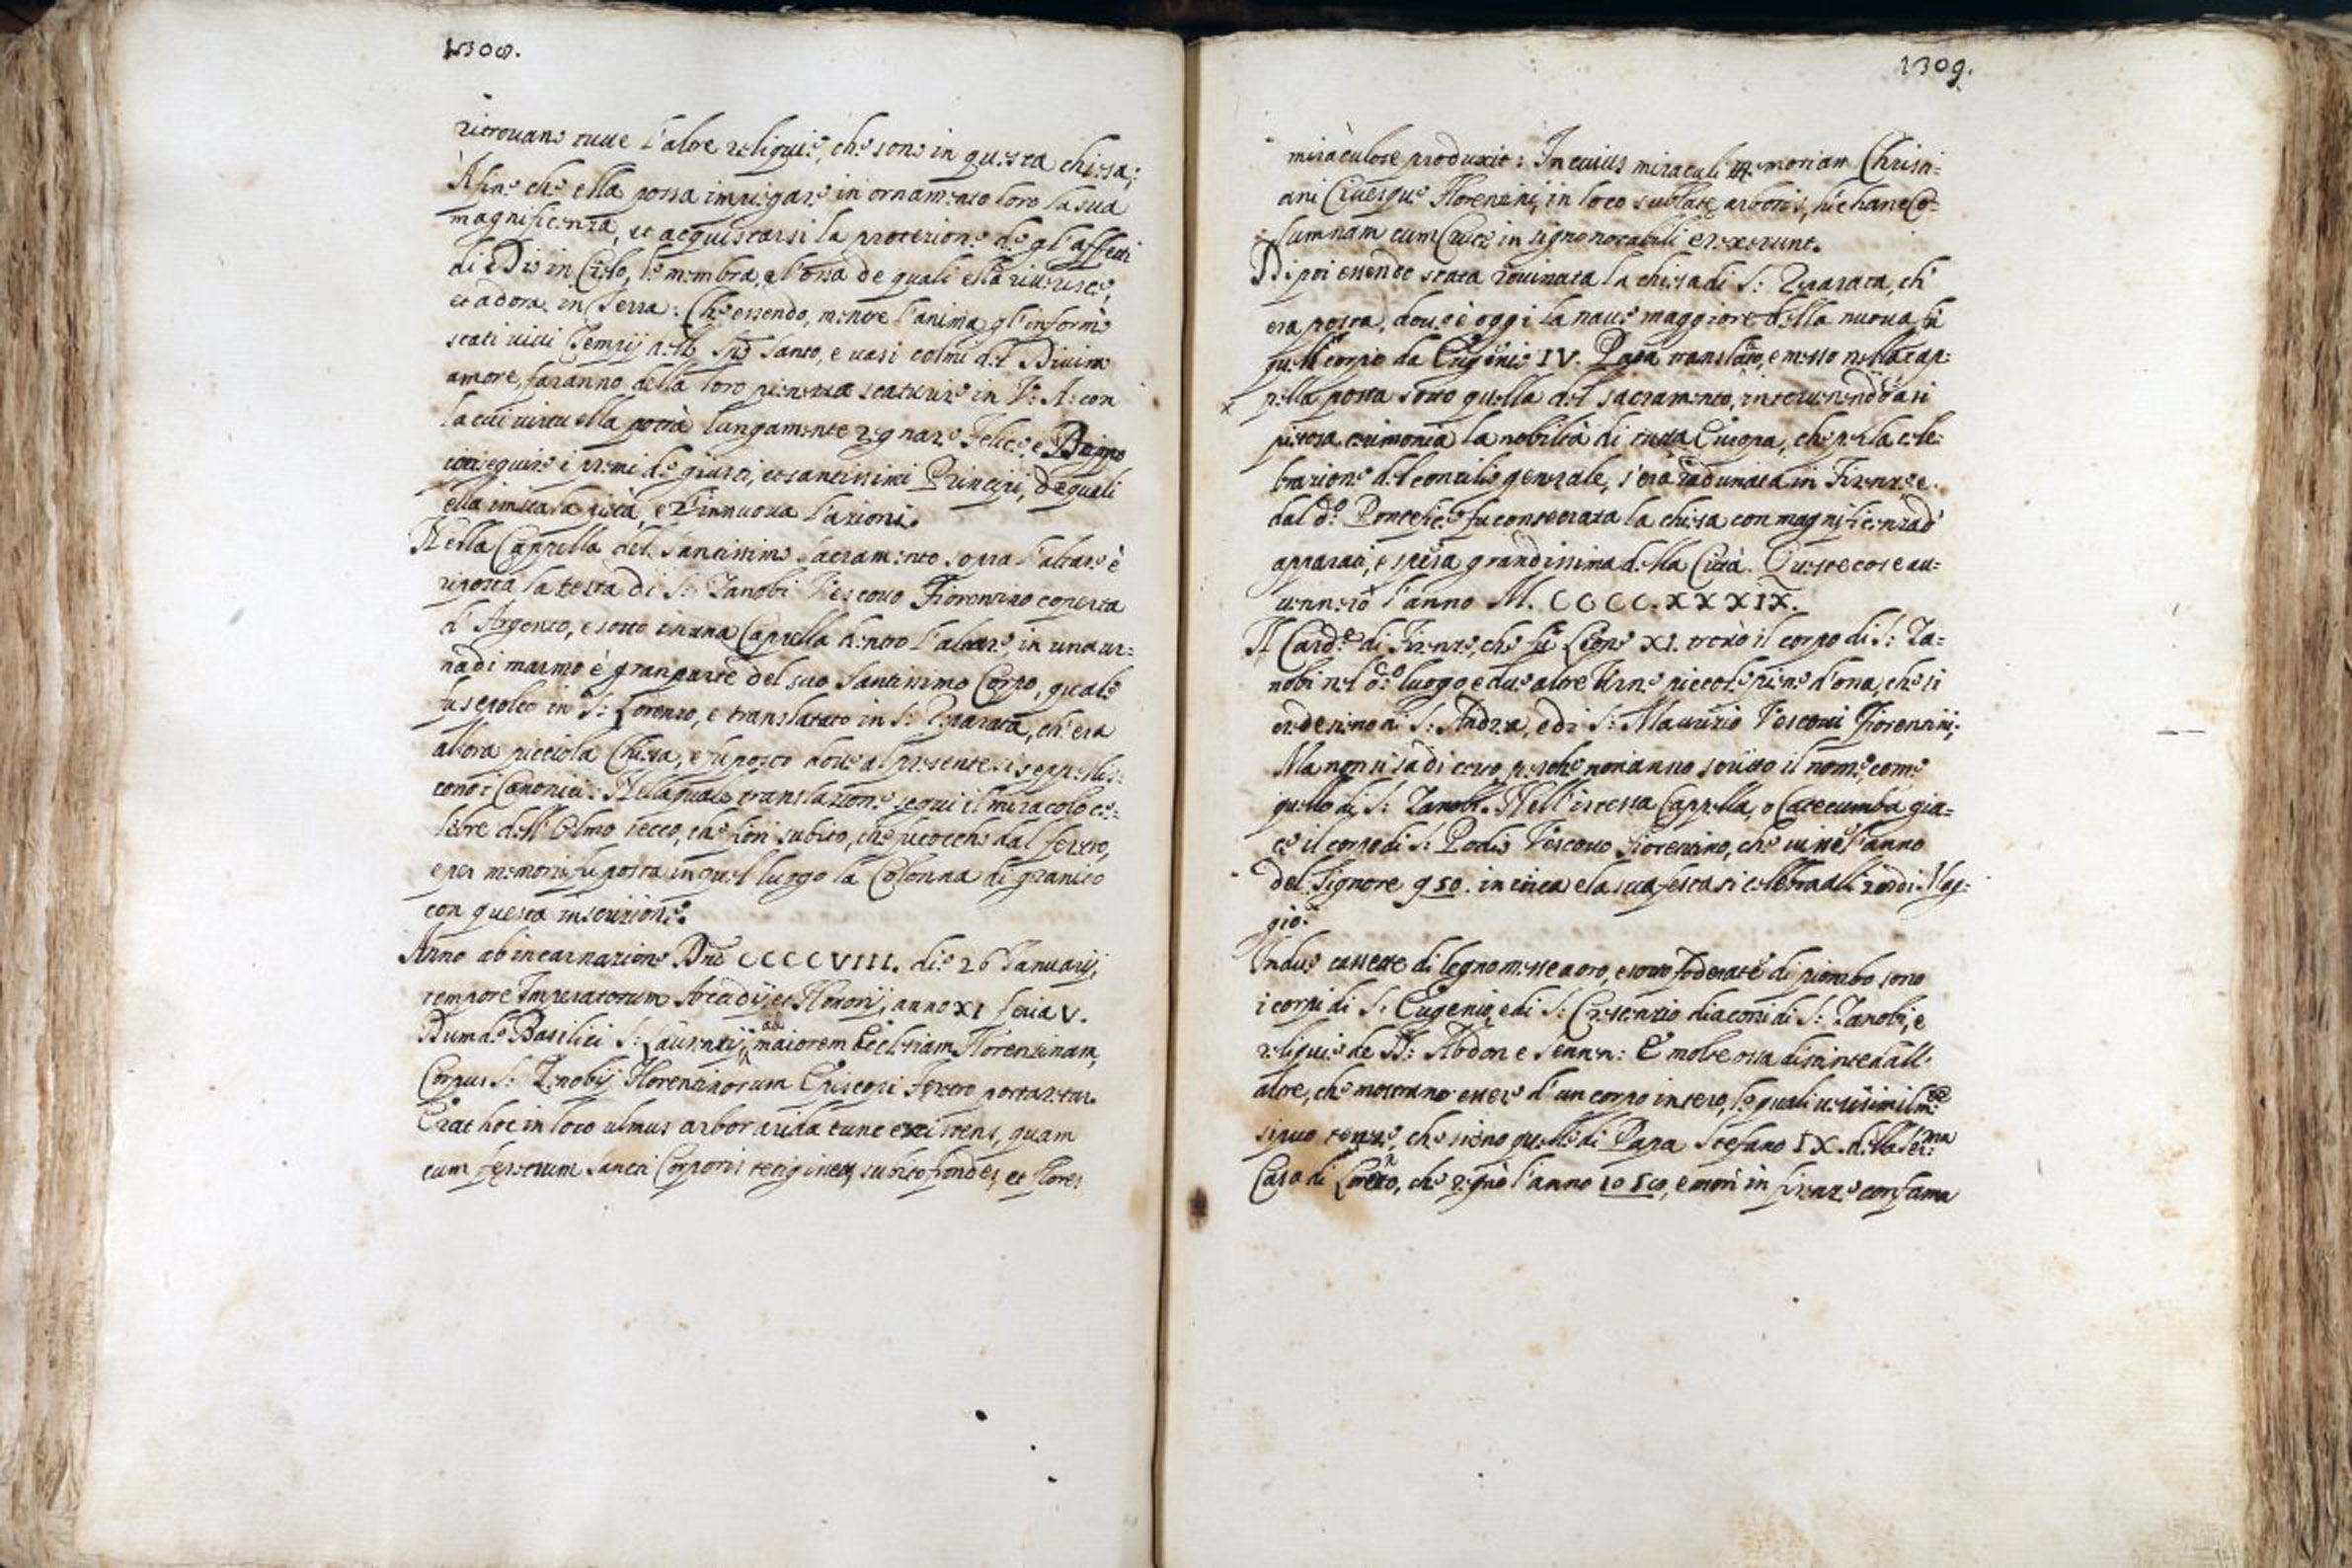 1308.
ritrovano tutte l'altre reliquie, che sono in questa chiesa;
Afine che ella possa impiegare in ornamento loro la sua
magnificenza, et acquistarsi la protezione de gl'affetti
di Dio in Cielo, le membra, e l'ossa de quali ella riverisce,
et adora in Terra: Che essendo, mentre l'anima gl'informò
stati vivi Tempij dello Spō Santo, e vasi colmi del Divino
amore, faranno della loro pienezza scaturire in V: A: con
la cui virtu ella potrà lungamente regnare Felice, e
conseguire i premi de giusti, et santissimi Principi, de quali
ella imita la pietà, e rinnuova l'azioni.
Nella Cappella del Santissimo Sacramento sopra l'altare è
riposta la testa di S: Zanobi Vescovo Fiorentino coperta
d'Argento, e sotto in una Cappella dentro l'altare, in una ur=
na di marmo è gran parte del suo Santissimo Corpo, quale
fu sepolto in S: Lorenzo, e translatato in S: Reparata, ch'era
allora picciola Chiesa, e fu posto dove al presente si seppellis:
cono i Canonici: Nella quale translazione seguì il miracolo ce:
lebre dell'Olmo secco, che fiorì subito, che fu tocche dal feretro,
e per memoria fu posta in quel luogo la Colonna di granito
con questa inscrizione.
Anno ab incarnazione Dnī CCCCVIII. die 26 Ianuarij,
tempore Imperatorum Arcadij et Honorij, anno XI feria V.
Dum de Basilici S: Laurentij, ad maiorem Ecclesiam Florentinam,
Corpus S: Zenobij Florentinorum Episcopi Feretro portaretur
Erat hoc in loco ulmus arbor arida tunc existens, quam
cum feretrum Sancti Corporis tetiginet, subito frondes, et flores
1309.
miràculose produxit: In cuius miraculi memoriam Christi=
ani Civesque Florentini, in loco sublate arboris, hic hanc Co=
lumnam cum Cruce in signo notabili erexerunt.
Di poi essendo stata rovinata la chiesa di S: Reparata, ch'
era posta, dove è oggi la nave maggiore della nuova, fù
quell corpo da Eugenio IV. Papa translato, e messo nella cap:
pella posta sotto quella del sacramento, intervenendo a si
pietosa cerimonia la nobiltà di tutta Europa, che per la cele:
brazione del concilio generale, s'era radunata in Firenze e
dal dº Pontefice fu consecrata la chiesa con magnificenza d'
apparati, e spesa grandissima della Città. Queste cose av=
vennero l'anno M. CCCC.XXXIX.
Il Card.e di Firenze, che fù Leone XI. trovò il corpo di S: Za=
nobi nel dº luogo, e due altre Urne piccole piene d'ossa, che si
credesino di S: Andrea, e di S: Maurizio Vescovi Fiorentini;
Ma non si sa di certo, perche non anno scritto il nome, come
quello di S: Zanobi. Nell'istessa Cappella, o Catecumba gia=
ce il corpo di S: Podio Vescovo Fiorentino, che visse l'anno
del Signore 950. in circa e la sua festa si celebra alli 28 di Mag:
gio.
In due cassette di legno messe a oro, e sotto foderate di piombo sono
i corpi di S: Eugenio, e di S: Crescenzio diaconi di S: Zanobi, e
reliquie de SS: Abdon e Sennen: E molte ossa disinte dall'
altre, che mostrano essere d'un corpo intero, le quali verisimilm.te
si puo tenere, che sieno quelle di Papa Stefano IX. della Ser.ma
Casa di Loreno, che regnò l'anno 1050, e morì in firenze con fama